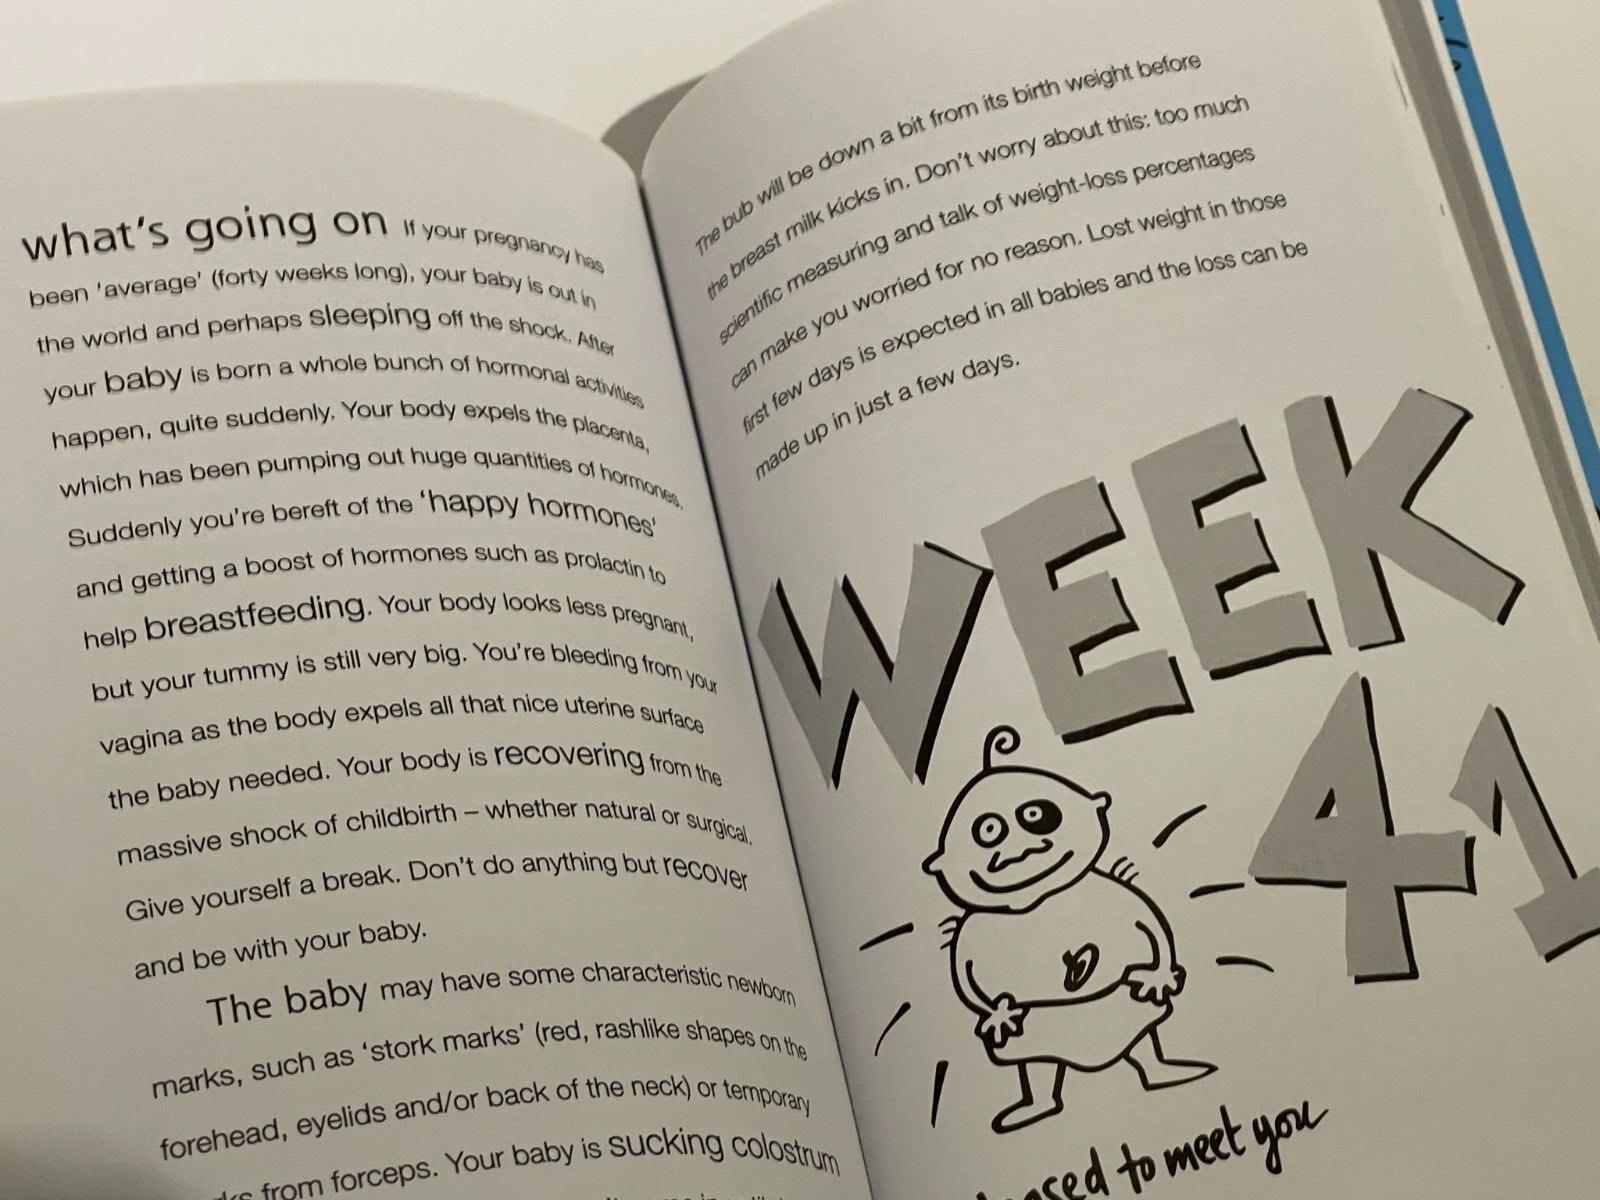 what's going on If your pregnancy has
been 'average' (forty weeks long), your baby is out in
the world and perhaps sleeping off the shock. After
your baby is born a whole bunch of hormonal activities
happen, quite suddenly. Your body expels the placenta,
which has been pumping out huge quantities of hormones.
Suddenly you're bereft of the 'happy hormones'
and getting a boost of hormones such as prolactin to
help breastfeeding. Your body looks less pregnant,
but your tummy is still very big. You're bleeding from your
vagina as the body expels all that nice uterine surface
the baby needed. Your body is recovering from the
massive shock of childbirth – whether natural or surgical.
Give yourself a break. Don't do anything but recover
and be with your baby.
The baby may have some characteristic newborn
marks, such as 'stork marks' (red, rashlike shapes on the
forehead, eyelids and/or back of the neck) or temporary
from forceps. Your baby is sucking colostrum
The bub will be down a bit from its birth weight before
the breast milk kicks in. Don't worry about this: too much
scientific measuring and talk of weight-loss percentages
can make you worried for no reason. Lost weight in those
first few days is expected in all babies and the loss can be
made up in just a few days.
WEEK
41
to meet you